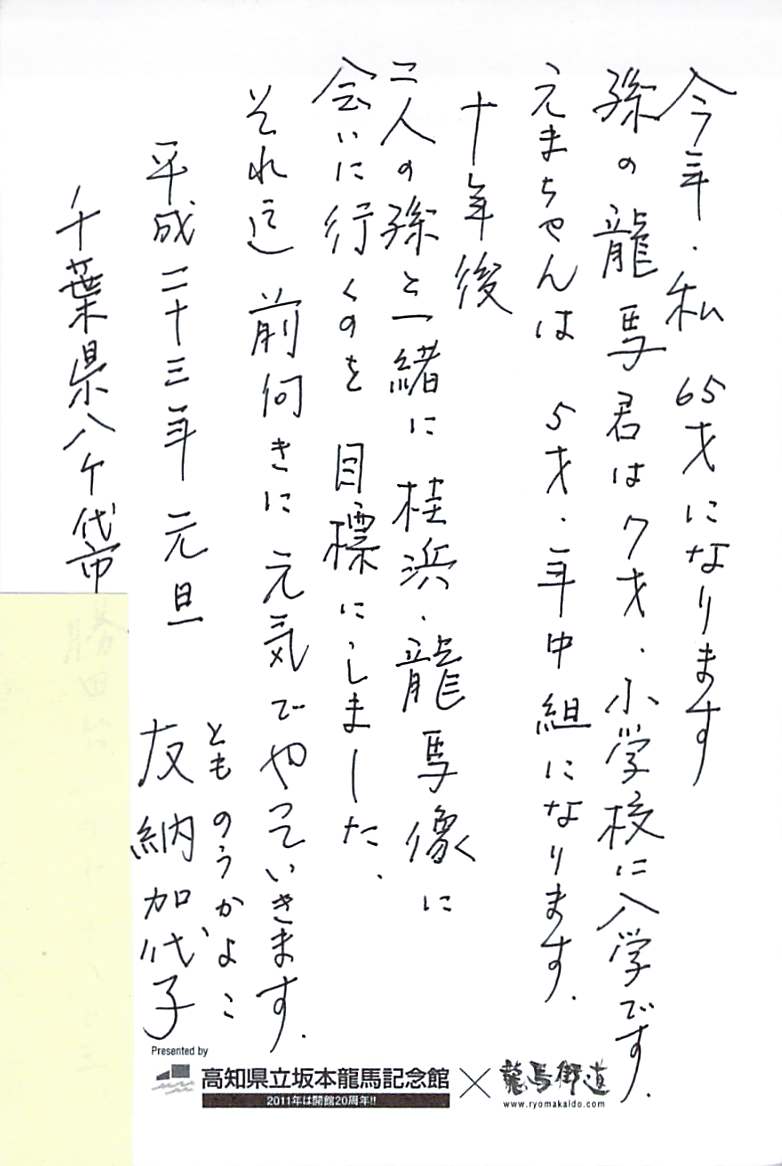 今年、私 65才になります
孫の龍馬君は7才、小学校に入学です。
えまちゃんは 5才、年中組になります。
十年後
二人の孫と一緒に桂浜、龍馬像に
会いに行くのを目標にしました。
それ迄 前向きに元気でやっていきます。
平成二十三年元旦
とものうかよこ
友納加代子
千葉県八千代市
Presented by
高知県立坂本龍馬記念館
2011年は開館20周年!!
×
龍馬街道
www.ryomakaido.com